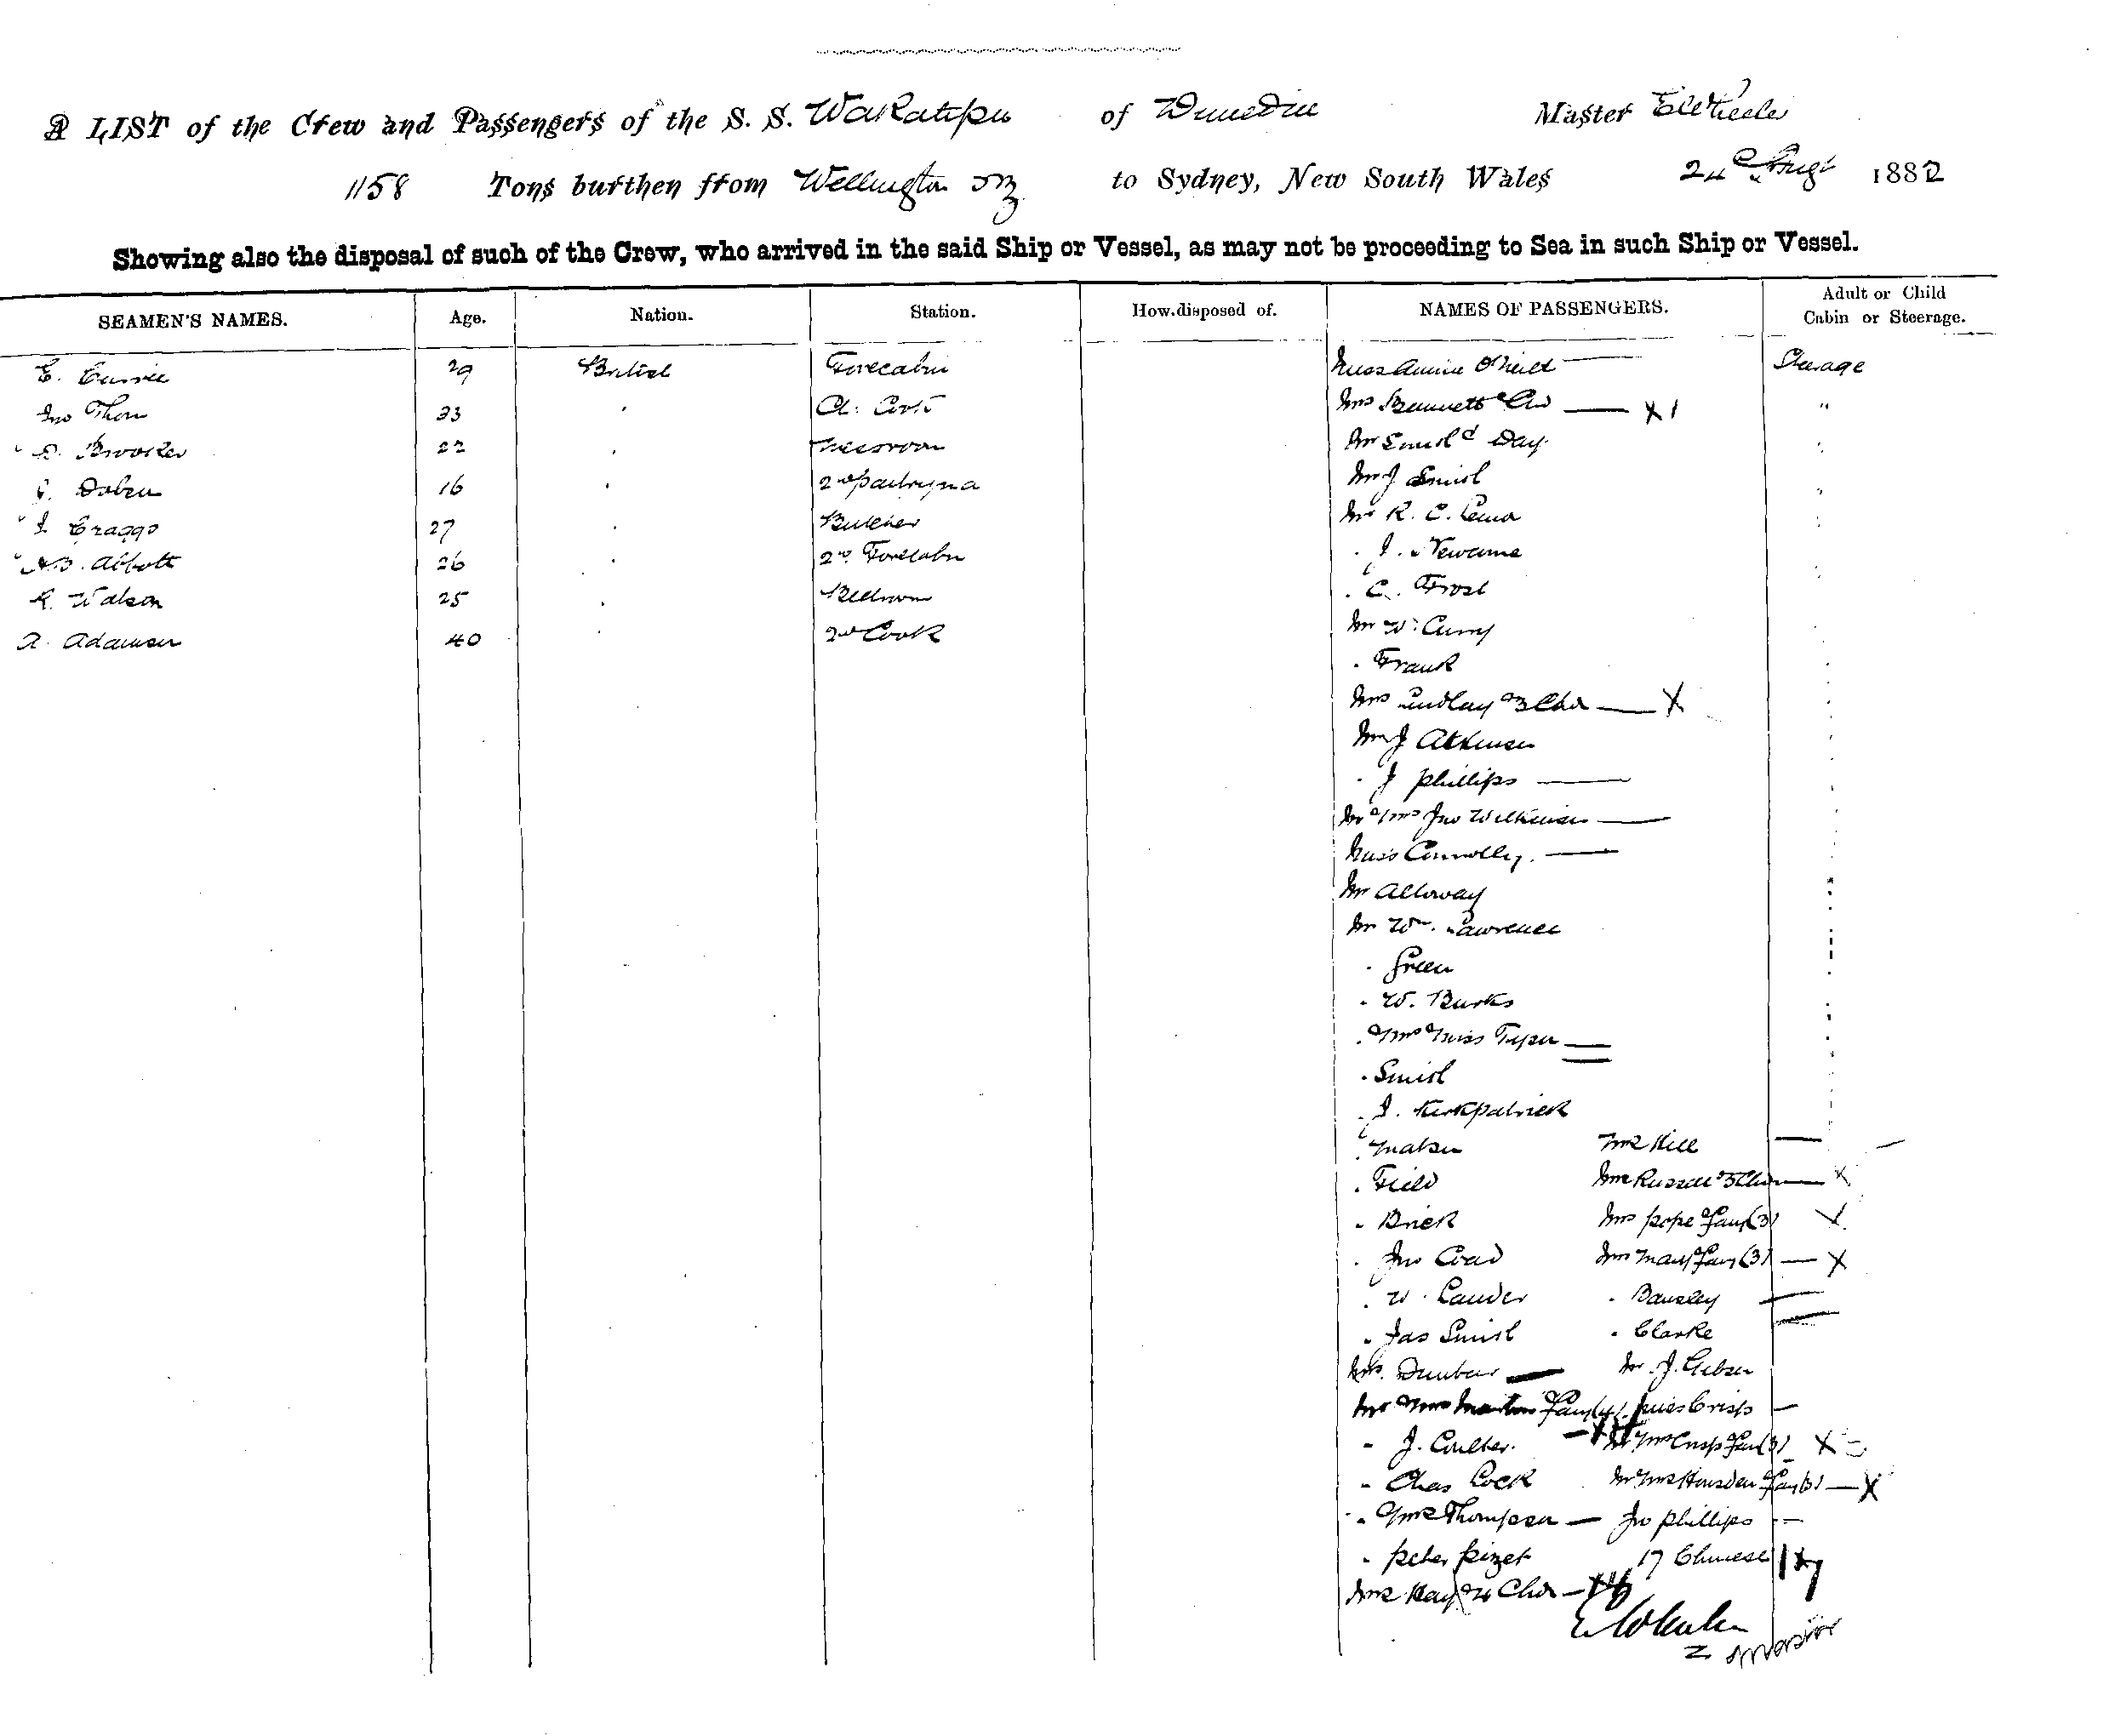 A LIST of the Crew and Passengers of the S. S. Wakatipu of Dunedin Master E Wheeler
1158 Tons burthen from Wellington NZ to Sydney, New South Wales 24th Augt 1882
Showing also the disposal of such of the Crew, who arrived in the said Ship or Vessel, as may not be proceeding to Sea in such Ship or Vessel.
SEAMEN'S NAMES. Age. Nation. Station. How disposed of. NAMES OF PASSENGERS. Adult or Child
Cabin or Steerage.
E. Currie 29 British Forecabin Miss Annie O'Neill Steerage
Jno Thom 33 Ch. Cook Mrs Bennett & Chd X 1 "
D. Brooker 22 Messroom Mr Day
16 2nd Pantryman Mr J Smith
J. Craggs 27 Butcher Mr R. C.
Abbott 26 2nd Forecabin J. Newcome
R. Watson 25 Bedroom C. Frost
A. Adamson 40 2nd Cook Mr W. Curry
Frank
Mrs Lindlay & 3 Chdn X
Mr J Atkinson
J Phillips
Mr & Mrs Jno Wilkinson
Miss Connolly.
Mr Alloway
Mr Wm. Lawrence
Green
W. Burks
& Mrs & Miss
Smith
J. Kirkpatrick
Mrs Hill
Field Mrs Russell & 3 Chdn X
Brick Mrs Pope & Famy (3) X
Jno Coad Mrs May & Famy (3) X
W. Lauder
Jas Smith Clarke
Mrs. Dunbar Mr. J. Gibson
Mr & Mrs Martin & Famy (4) Miss Crisp
J. Coulter. Mr & Mrs Crisp & Fam (3) X
Chas Lock Mr & Mrs Housden & Fam (3) X
& Mrs Thompson Jno Phillips
Peter 17 Chinese 17
Mrs Hay & 4 Chdn
E Wheeler
Master